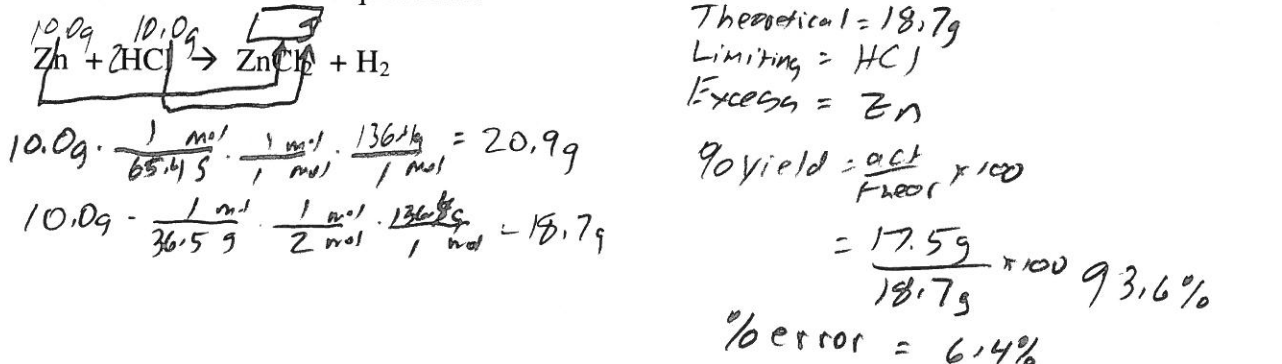 10.0g 10.0g
Zn + 2HCl → ZnCl2 + H2
10.0g · 1 mol / 65.4 g · 1 mol / 1 mol · 136.4g / 1 mol = 20.9g
10.0g · 1 mol / 36.5 g · 1 mol / 2 mol · 136.4g / 1 mol = 18.7g
Theoretical = 18.7g
Limiting = HCl
Excess = Zn
% yield = act / theor × 100
= 17.5g / 18.7g × 100 93.6%
% error = 6.4%